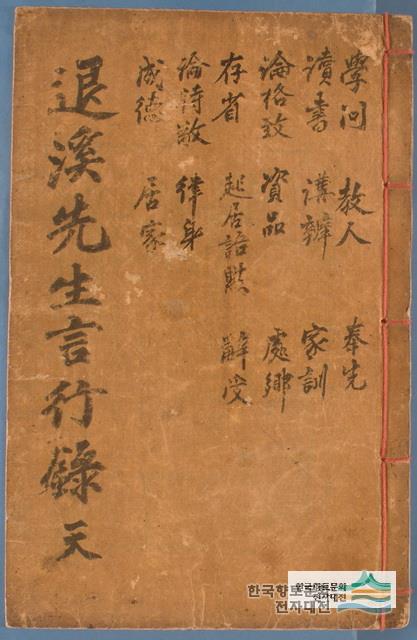 學問 教人 奉先
讀書 講辨 家訓
論格致 資品 處鄉
存省 起居語默 辭受
論持敬 律身
成德 居家
退溪先生言行錄 天
한국향토문화
전자대전
한국향토문화
전자대전